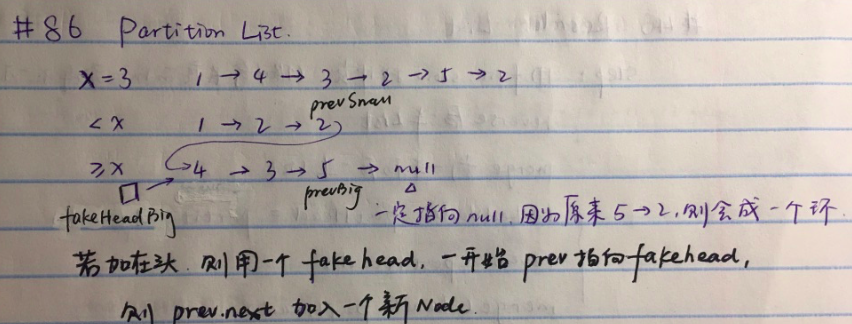 #86 Partition List.
x=3 1 → 4 → 3 → 2 → 5 → 2
prevSmall
<x 1 → 2 → 2
≥x 4 → 3 → 5 → null
fakeHeadBig prevBig 一定指向null,因为原来5→2,则会成一个环.
若加在头,则用一个fake head,一开始prev指向fakehead,
则prev.next加入一个新Node.